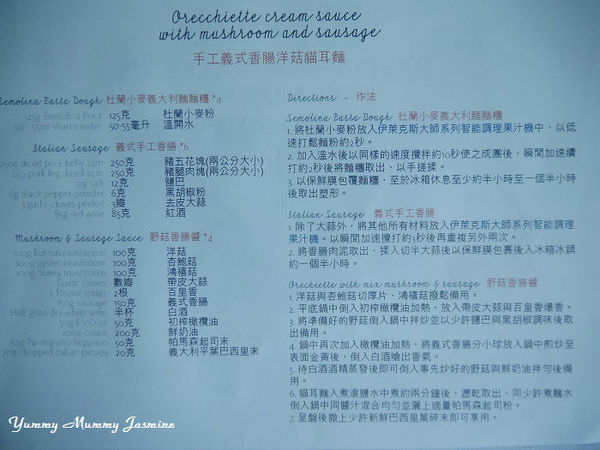 Orecchiette cream sauce
with mushroom and sausage
手工義式香腸洋菇貓耳麵
Semolina Pasta Dough 杜蘭小麥義大利麵麵糰 *4
125g Semolina flour 125克 杜蘭小麥粉
50 - 55ml Warm water 50-55毫升 溫開水
Italian Sausage 義式手工香腸 *6
250g diced pork belly 2cm 250克 豬五花塊(兩公分大小)
250g pork leg diced 2cm 250克 豬腿肉塊(兩公分大小)
12g salt 12克 鹽巴
6g black pepper powder 6克 黑胡椒粉
3 garlic cloves peeled 3瓣 去皮大蒜
85g red wine 85克 紅酒
Mushroom & Sausage Sauce 野菇香腸醬 *4
100g button mushroom 100克 洋菇
100g oyster mushroom 100克 杏鮑菇
100g honey mushroom 100克 鴻禧菇
Garlic cloves 數瓣 帶皮大蒜
2 Thyme sprigs 2根 百里香
150g sausage 150克 義式香腸
Half glass dry white wine 半杯 白酒
50g EVO oil 50克 初榨橄欖油
200g cream 200克 鮮奶油
50g Parmigiano Reggiano 50克 帕馬森起司末
20g chopped italian parsley 20克 義大利平葉巴西里末
Directions - 作法
Semolina Pasta Dough 杜蘭小麥義大利麵麵糰
1. 將杜蘭小麥粉放入伊萊克斯大師系列智能調理果汁機中，以低
速打鬆麵粉約2秒。
2. 加入溫水後以同樣的速度攪拌約10秒使之成團後，瞬間加速續
打約2秒後將麵糰取出，以手搓揉。
3. 以保鮮膜包覆麵糰，至於冰箱休息至少約半小時至一個半小時
後取出塑形。
Italian Sausage 義式手工香腸
1. 除了大蒜外，將其他所有材料放入伊萊克斯大師系列智能調理
果汁機。以瞬間加速攪打約3秒後再重複另外兩次。
2. 將香腸肉泥取出，揉入切半大蒜後以保鮮膜包裹後入冰箱冰鎮
約一個半小時。
Orechiette with mix mushroom & sausage 野菇香腸醬
1. 洋菇與杏鮑菇切厚片、鴻禧菇撥鬆備用。
2. 平底鍋中倒入初榨橄欖油加熱，放入帶皮大蒜與百里香爆香。
3. 將準備好的野菇倒入鍋中拌炒並以少許鹽巴與黑胡椒調味後取
出備用。
4. 鍋中再次加入橄欖油加熱，將義式香腸分小球放入鍋中煎炒至
表面金黃後，倒入白酒嗆出香氣。
5. 待白酒酒精蒸發後即可倒入事先炒好的野菇與鮮奶油拌勻後備
用。
6. 貓耳麵入煮滾鹽水中煮約兩分鐘後，瀝乾取出，同少許煮麵水
倒入鍋中同醬汁混合均勻並灑上適量帕馬森起司粉。
7. 呈盤後撒上少許新鮮巴西里葉碎末即可享用。
Yummy Mummy Jasmine